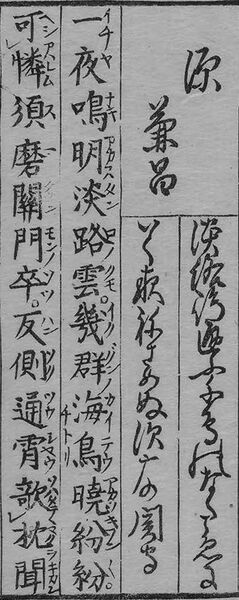 源兼昌
淡路嶋通ふ千鳥のなくこゑに
いく夜ねさめぬ須广の関守
一夜鳴明淡路雲。幾群海鳥曉紛紛。
可憐須磨關門卒。反側通霄欹枕聞